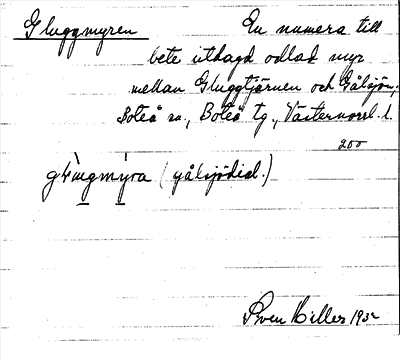 Gluggmyren En numera till
bete utlagd odlad myr
mellan Gluggtjärnen och Gålsjön,
Boteå sn., Boteå tg., Västernorrl. l.
200
(gålsjödial.)
Sven Hiller 193